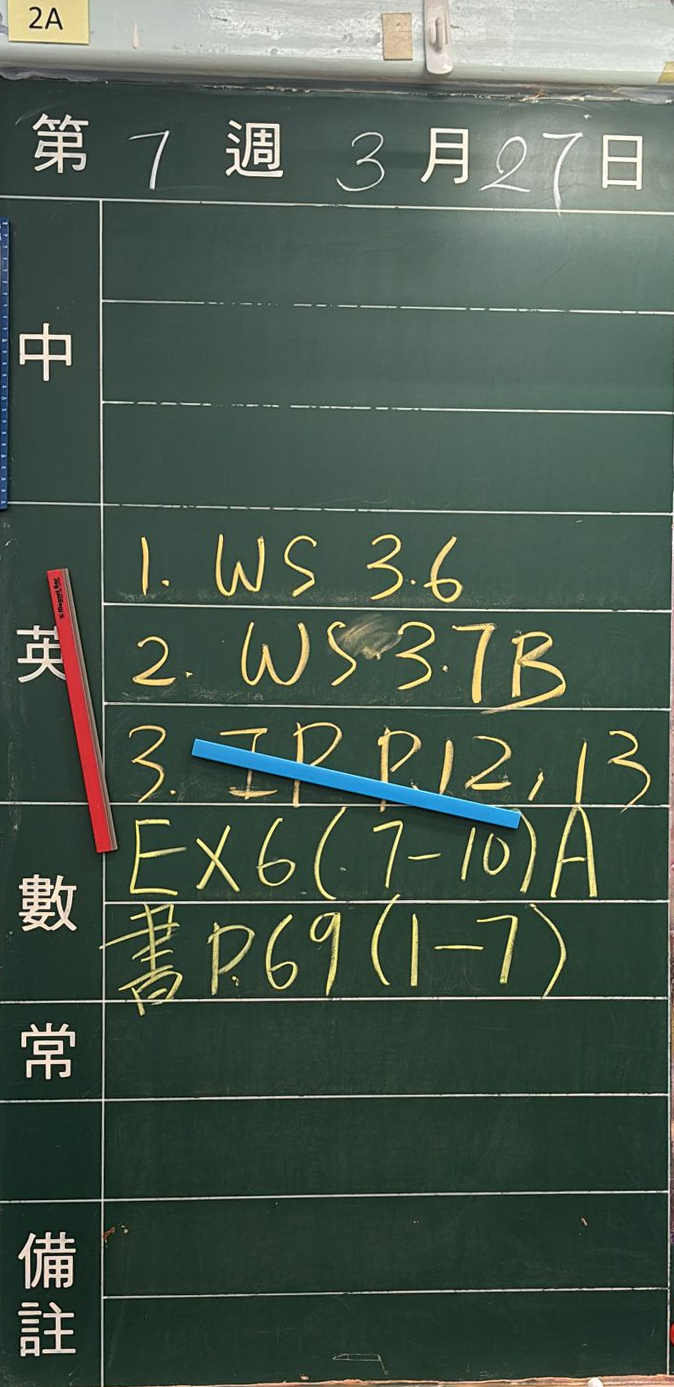 2A
第 7 週 3 月 27 日
中
英
1. WS 3.6
2. WS 3.7B
3. IP P.12, 13
數
EX6(7-10)A
書P.69(1-7)
常
備註